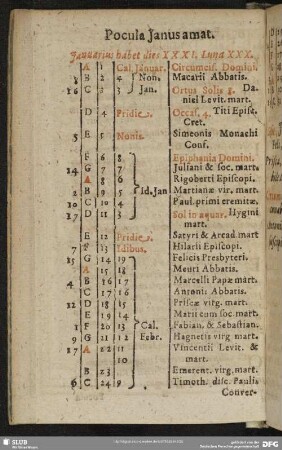 Pocula Janus amat.
Januarius habet dies XXXI. Luna XXX.
A 1 Cal. Januar. Circumcis. Domini.
8 B 2 4 Non. Macarii Abbatis.
16 C 3 3 Jan. Ortus Solis 8. Da-
niel Levit. mart.
D 4 Pridie Occas. 4. Titi Episc.
Cret.
5 E 5 Nonis. Simeonis Monachi
Conf.
F 6 8 Epiphania Domini.
14 G 7 7 Juliani & soc. mart
A 8 6 Rigoberti Episcopi.
2 B 9 5 Id. Jan Martianæ vir. mart.
10 C 10 4 Paul. primi eremitæ.
17 D 11 3 Sol in aquar. Hygini
mart.
E 12 Pridie Satyri & Arcad. mart
7 F 13 Idibus. Hilarii Episcopi.
15 G 14 19 Felicis Presbyteri.
A 15 18 Mauri Abbatis.
4 B 16 17 Marcelli Papæ mart.
C 17 Antonii Abbatis.
12 D 18 15 Priscæ virg. mart.
E 19 14 Marii cum soc mart.
1 F 20 13 Cal. Fabian. & Sebastian.
9 G 21 12 Febr. Hagnetis virg mart.
17 A Vincentii Levit. &
10 mart.
B Emerent. virg. mart.
6 C 24 9 Timoth. disc. Paulis
Conver-
SLUB
Wir führen Wissen.
DFG